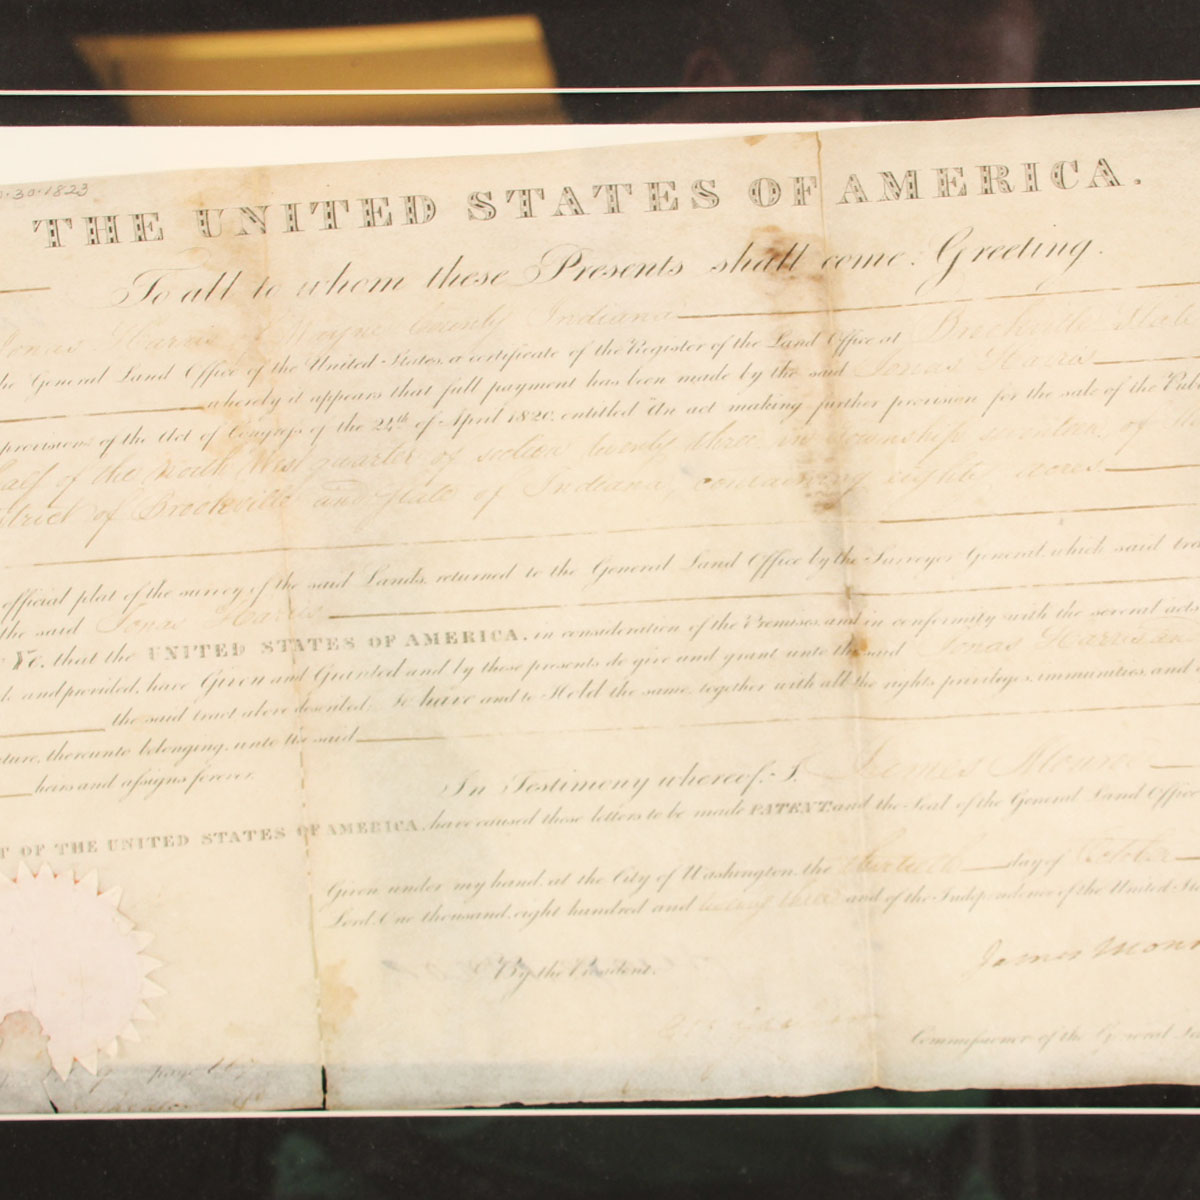 30-1823
THE UNITED STATES OF AMERICA.
To all to whom these Presents shall come, Greeting.
Jonas Harris of Wayne County Indiana
the General Land Office of the United States, a certificate of the Register of the Land Office at Brookville
whereby it appears that full payment has been made by the said Jonas Harris
provisions of the Act of Congress of the 24th of April 1820, entitled "An act making further provision for the sale of the
half of the North West quarter of section twenty three, in township seventeen, of
district of Brookville and state of Indiana, containing eighty acres
official plat of the survey of the said Lands, returned to the General Land Office by the Surveyor General, which said
the said Jonas Harris
Ye, that the UNITED STATES OF AMERICA, in consideration of the Premises, and in conformity with the several acts
and provided, have Given and Granted and by these presents do give and grant unto the said Jonas Harris
the said tract above described; To have and to Hold the same, together with all the rights, privileges, immunities, and
thereunto belonging, unto the said
heirs and assigns forever.
In Testimony whereof, I, James Monroe
OF THE UNITED STATES OF AMERICA, have caused these letters to be made PATENT, and the Seal of the General Land Office
Given under my hand, at the City of Washington, the thirtieth day of October
Lord, One thousand, eight hundred and twenty three and of the Independence of the United
James
By the President,
Commissioner of the General